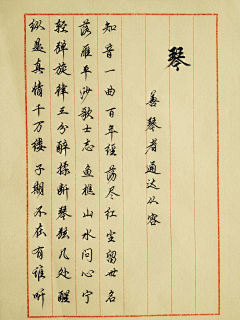 琴
善琴者通达从容
知音一曲百年经荡尽红尘留世名
落雁平沙歌士志鱼樵山水问心宁
轻弹旋律三分醉揉断琴弦几处醒
纵是真情千万缕子期不在有谁听